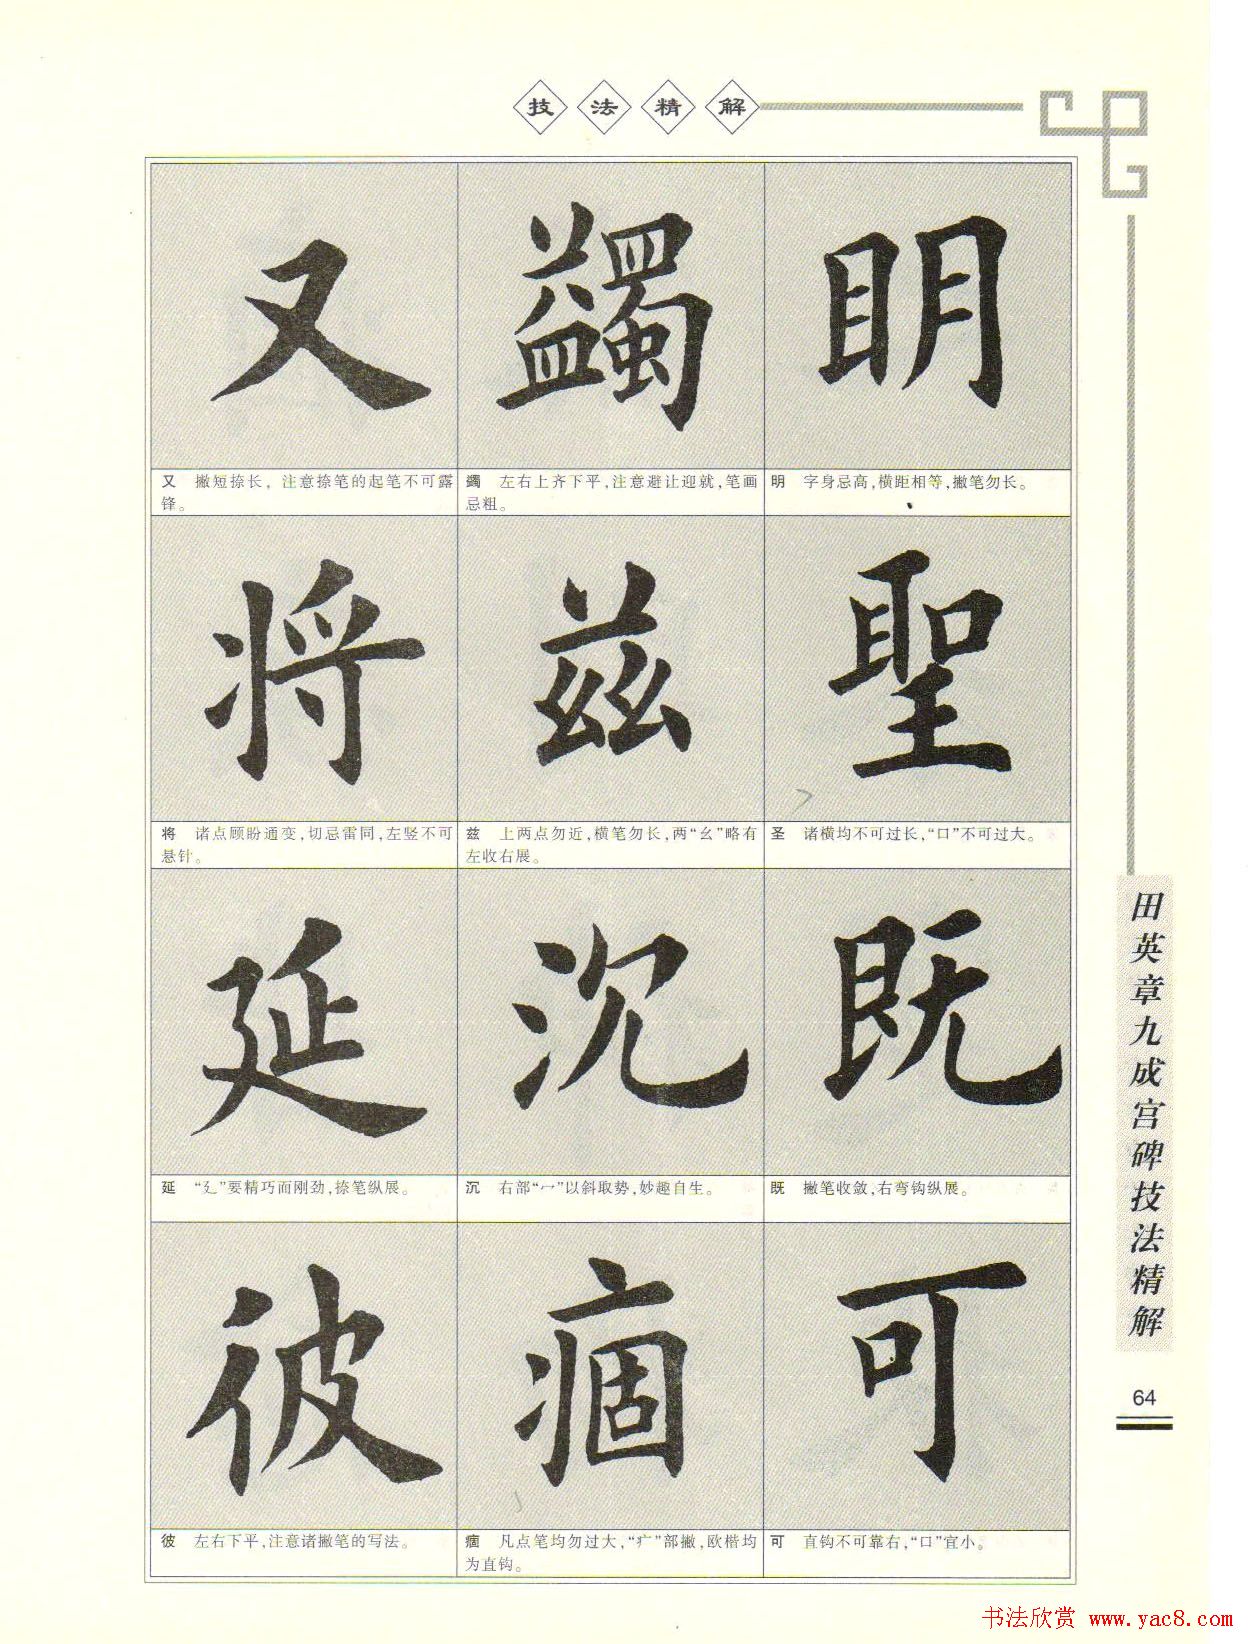 技法精解
眀
明 字身忌高,横距相等,撇笔勿长。
聖
圣 诸横均不可过长,“口”不可过大。
既
既 撇笔收敛,右弯钩纵展。
可
可 直钩不可靠右,“口”宜小。
蠲
蠲 左右上齐下平,注意避让迎就,笔画
忌粗。
兹
兹 上两点勿近,横笔勿长,两“幺”略有
左收右展。
沉
沉 右部“冖”以斜取势,妙趣自生。
痼
痼 凡点笔均勿过大,“疒”部撇,欧楷均
为直钩。
又
又 撇短捺长，注意捺笔的起笔不可露
锋。
将
将 诸点顾盼通变,切忌雷同,左竖不可
悬针。
延
延 “廴”要精巧而刚劲,捺笔纵展。
彼
彼 左右下平,注意诸撇笔的写法。
田英章九成宫碑技法精解
64
书法欣赏 www.yac8.com